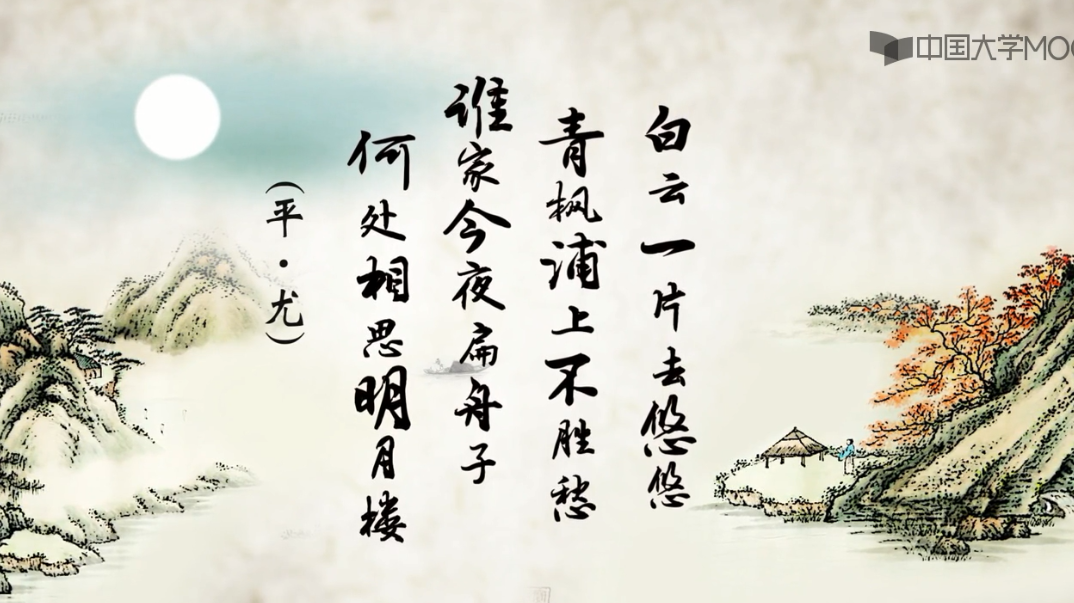 白云一片去悠悠
青枫浦上不胜愁
谁家今夜扁舟子
何处相思明月楼
（平·尤）
中国大学MOO